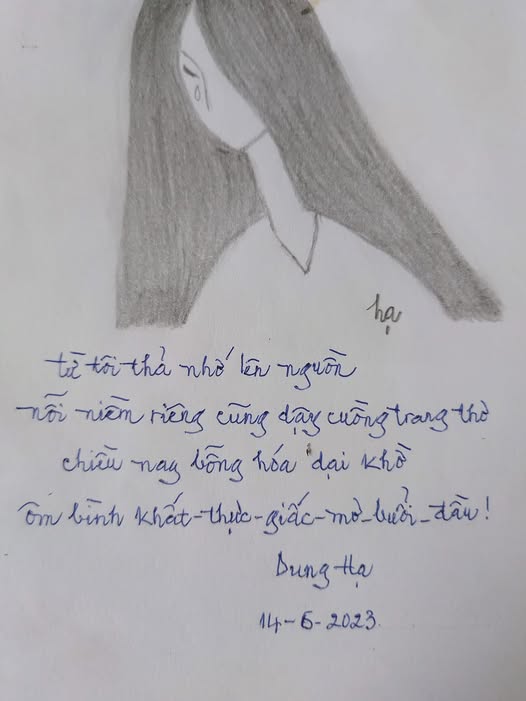 hạ
từ tôi thả nhớ lên nguồn
nỗi niềm riêng cũng dậy cuồng trang thơ
chiều nay bỗng hóa dại khờ
ôm bình khất-thực-giấc-mơ-buổi-đầu!
Dung Hạ
14-6-2023.